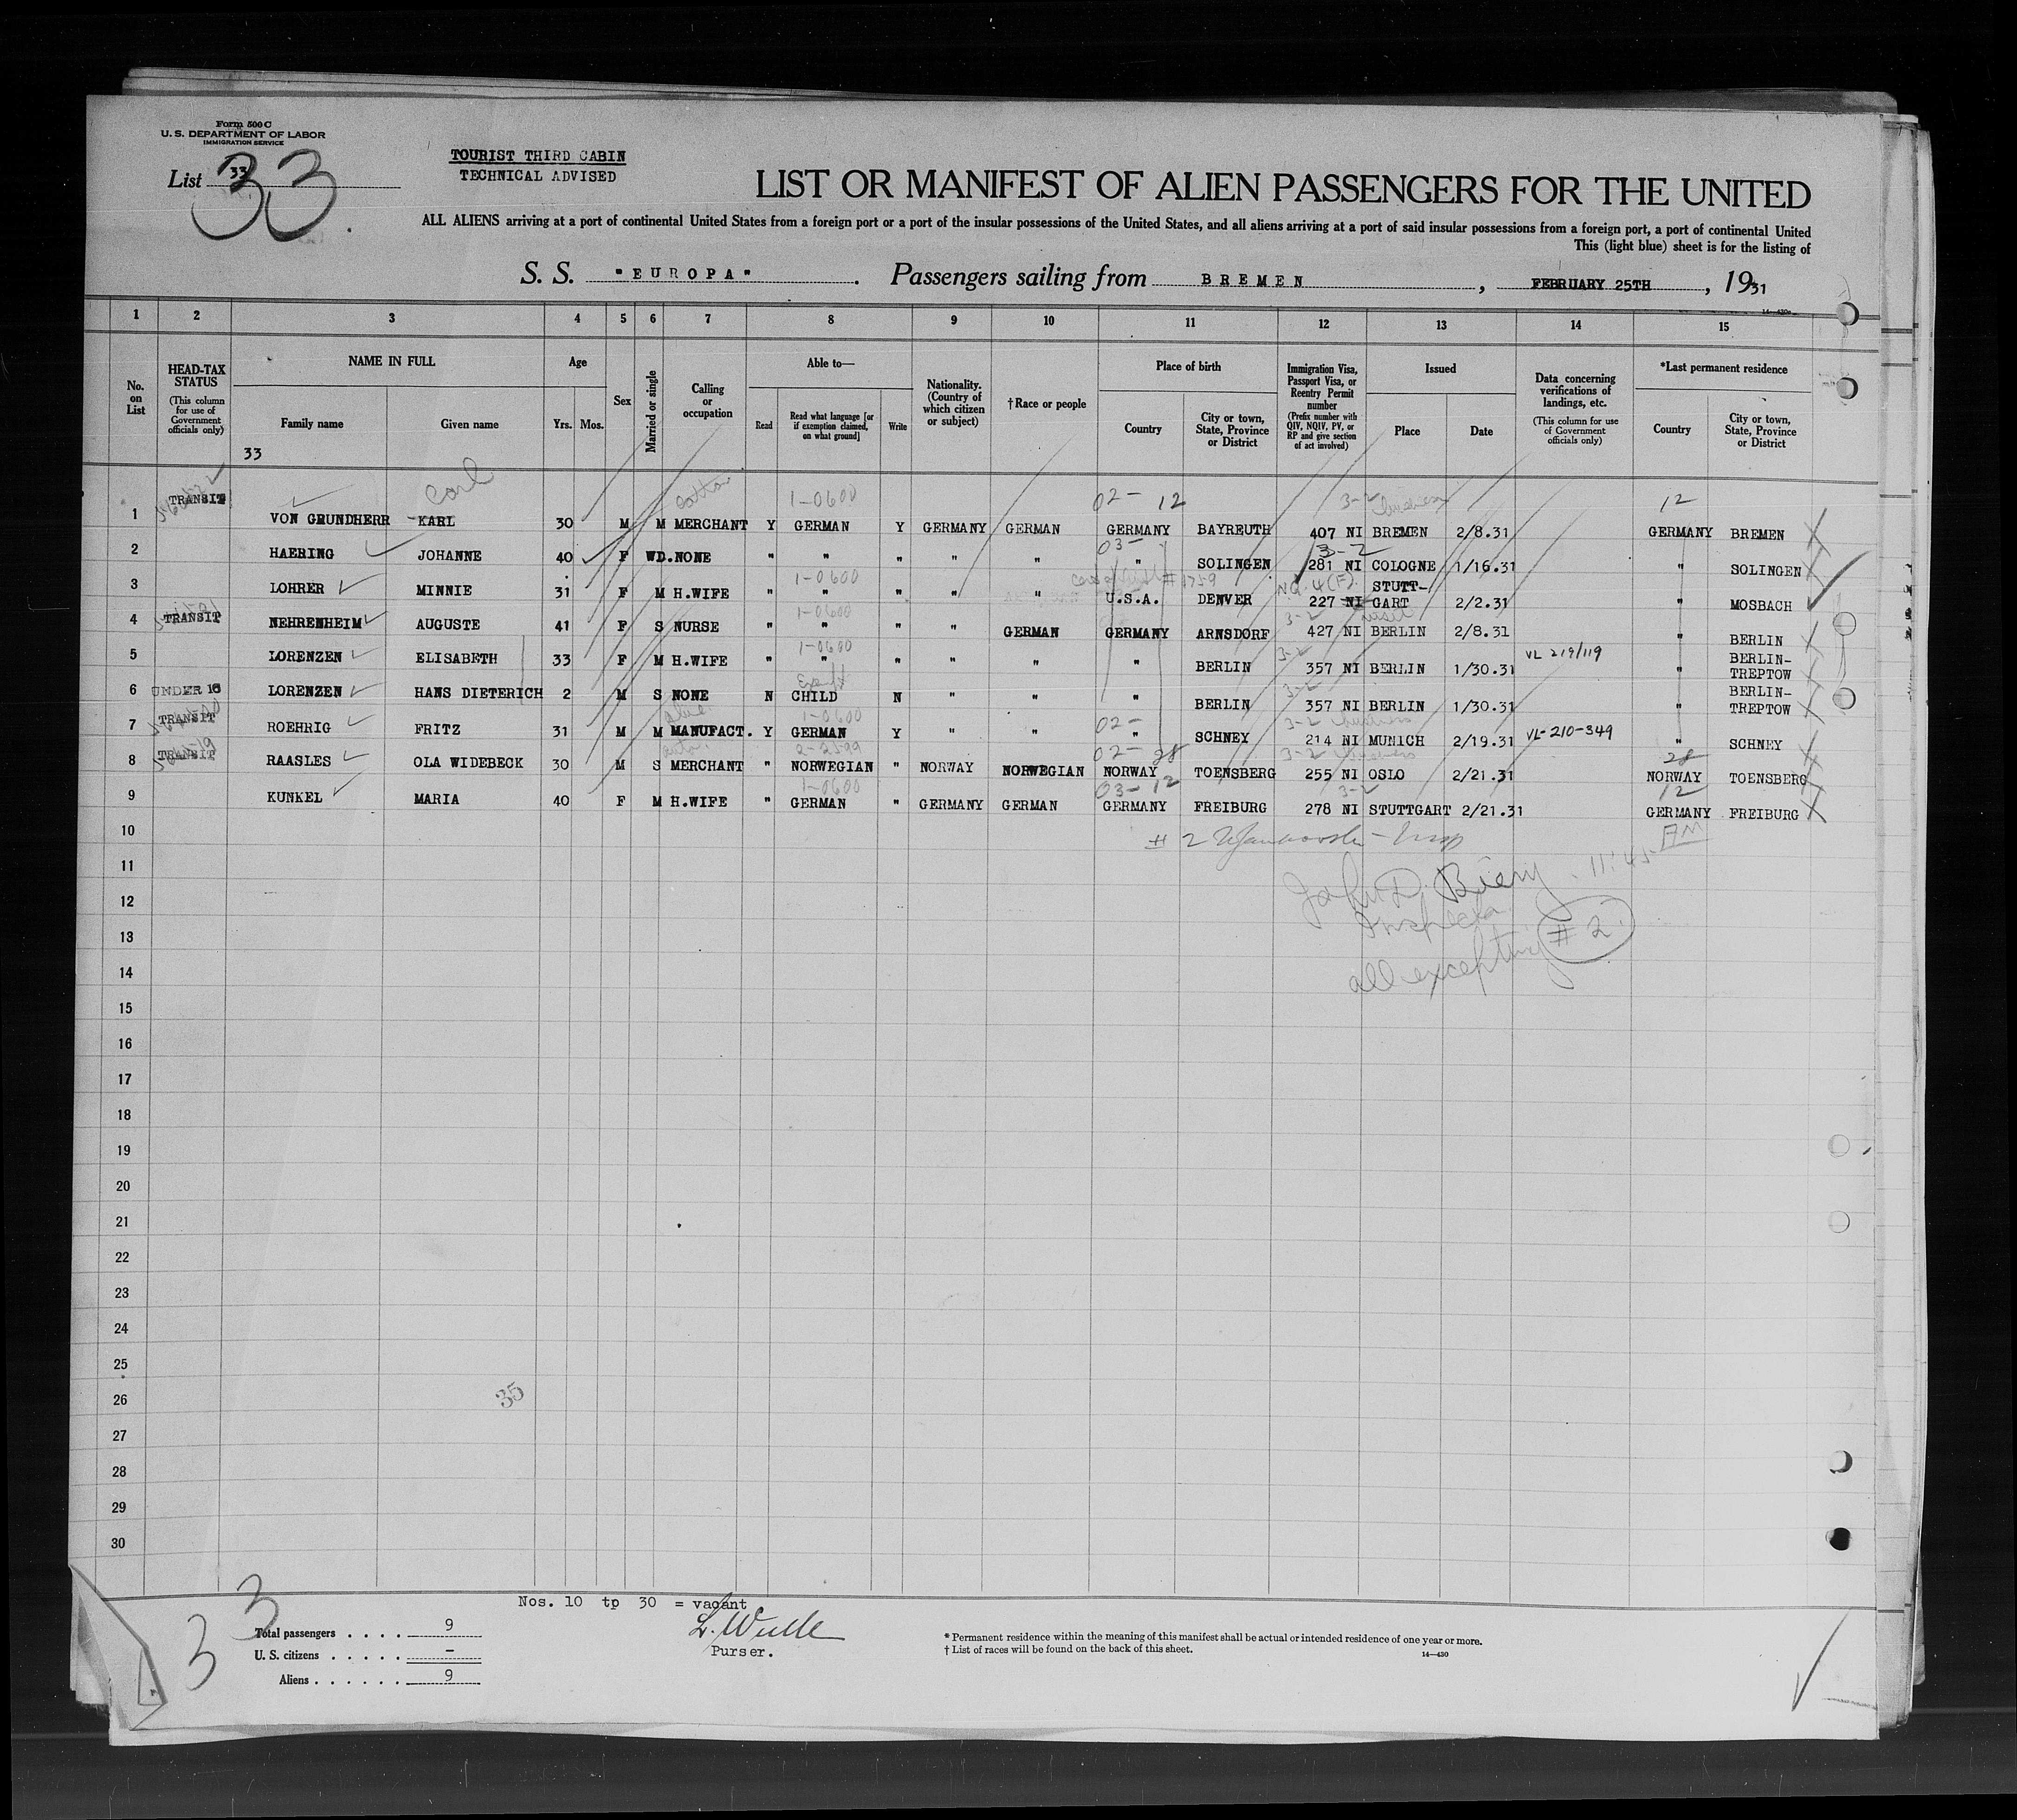 Form 500 C
U. S. DEPARTMENT OF LABOR
IMMIGRATION SERVICE
List 33
33.
TOURIST THIRD CABIN
TECHNICAL ADVISED
LIST OR MANIFEST OF ALIEN PASSENGERS FOR THE UNITED
ALL ALIENS arriving at a port of continental United States from a foreign port or a port of the insular possessions of the United States, and all aliens arriving at a port of said insular possessions from a foreign port, a port of continental United
This (light blue) sheet is for the listing of
S. S. "EUROPA". Passengers sailing from BREMEN, FEBRUARY 25TH, 1931
14—430a
1 2 3 4 5 6 7 8 9 10 11 12 13 14 15
No. on List
HEAD-TAX STATUS (This column for use of Government officials only)
NAME IN FULL
Family name
Given name
Age
Yrs. Mos.
Sex
Married or single
Calling or occupation
Able to—
Read
Read what language [or if exemption claimed, on what ground]
Write
Nationality. (Country of which citizen or subject)
†Race or people
Place of birth
Country
City or town, State, Province or District
Immigration Visa, Passport Visa, or Reentry Permit number (Prefix number with QIV, NQIV, PV, or RP and give section of act involved)
Issued
Place
Date
Data concerning verifications of landings, etc. (This column for use of Government officials only)
*Last permanent residence
Country
City or town, State, Province or District
33
Carl cotton 1-0600 02- 12 3-2 business 12
1 TRANSIT VON GRUNDHERR KARL 30 M M MERCHANT Y GERMAN Y GERMANY GERMAN GERMANY BAYREUTH 407 NI BREMEN 2/8.31 GERMANY BREMEN
03- 3-2
2 HAERING JOHANNE 40 F WD. NONE " " " " " " SOLINGEN 281 NI COLOGNE 1/16.31 " SOLINGEN
1-0600 #1759 NQ. 4(E).
3 LOHRER MINNIE 31 F M H.WIFE " " " " " U.S.A. DENVER 227 NI STUTT-GART 2/2.31 " MOSBACH
1-0600 3-2 visit
4 TRANSIT NEHRENHEIM AUGUSTE 41 F S NURSE " " " " GERMAN GERMANY ARNSDORF 427 NI BERLIN 2/8.31 " BERLIN
1-0600 3-2
5 LORENZEN ELISABETH 33 F M H.WIFE " " " " " " BERLIN 357 NI BERLIN 1/30.31 VL 219/119 " BERLIN-TREPTOW
3-2
6 UNDER 16 LORENZEN HANS DIETERICH 2 M S NONE N CHILD N " " " BERLIN 357 NI BERLIN 1/30.31 " BERLIN-TREPTOW
1-0600 02- 3-2 business
7 TRANSIT ROEHRIG FRITZ 31 M M MANUFACT. Y GERMAN Y " " " SCHNEY 214 NI MUNICH 2/19.31 VL-210-349 " SCHNEY
2-2599 02- 28 3-2 business 28
8 TRANSIT RAASLES OLA WIDEBECK 30 M S MERCHANT " NORWEGIAN " NORWAY NORWEGIAN NORWAY TOENSBERG 255 NI OSLO 2/21.31 NORWAY TOENSBERG
1-0600 03- 12 3-2 12
9 KUNKEL MARIA 40 F M H.WIFE " GERMAN " GERMANY GERMAN GERMANY FREIBURG 278 NI STUTTGART 2/21.31 GERMANY FREIBURG
10
# 2
11
John D. Biery. 11:45 AM
12
Inspector
13
all excepting # 2.
14
15
16
17
18
19
20
21
22
23
24
25
26
35
27
28
29
30
Nos. 10 tp 30 = vacant
33
Total passengers . . . . 9
U. S. citizens . . . . . –
Aliens . . . . . . 9
Purser.
* Permanent residence within the meaning of this manifest shall be actual or intended residence of one year or more.
† List of races will be found on the back of this sheet.
14—430